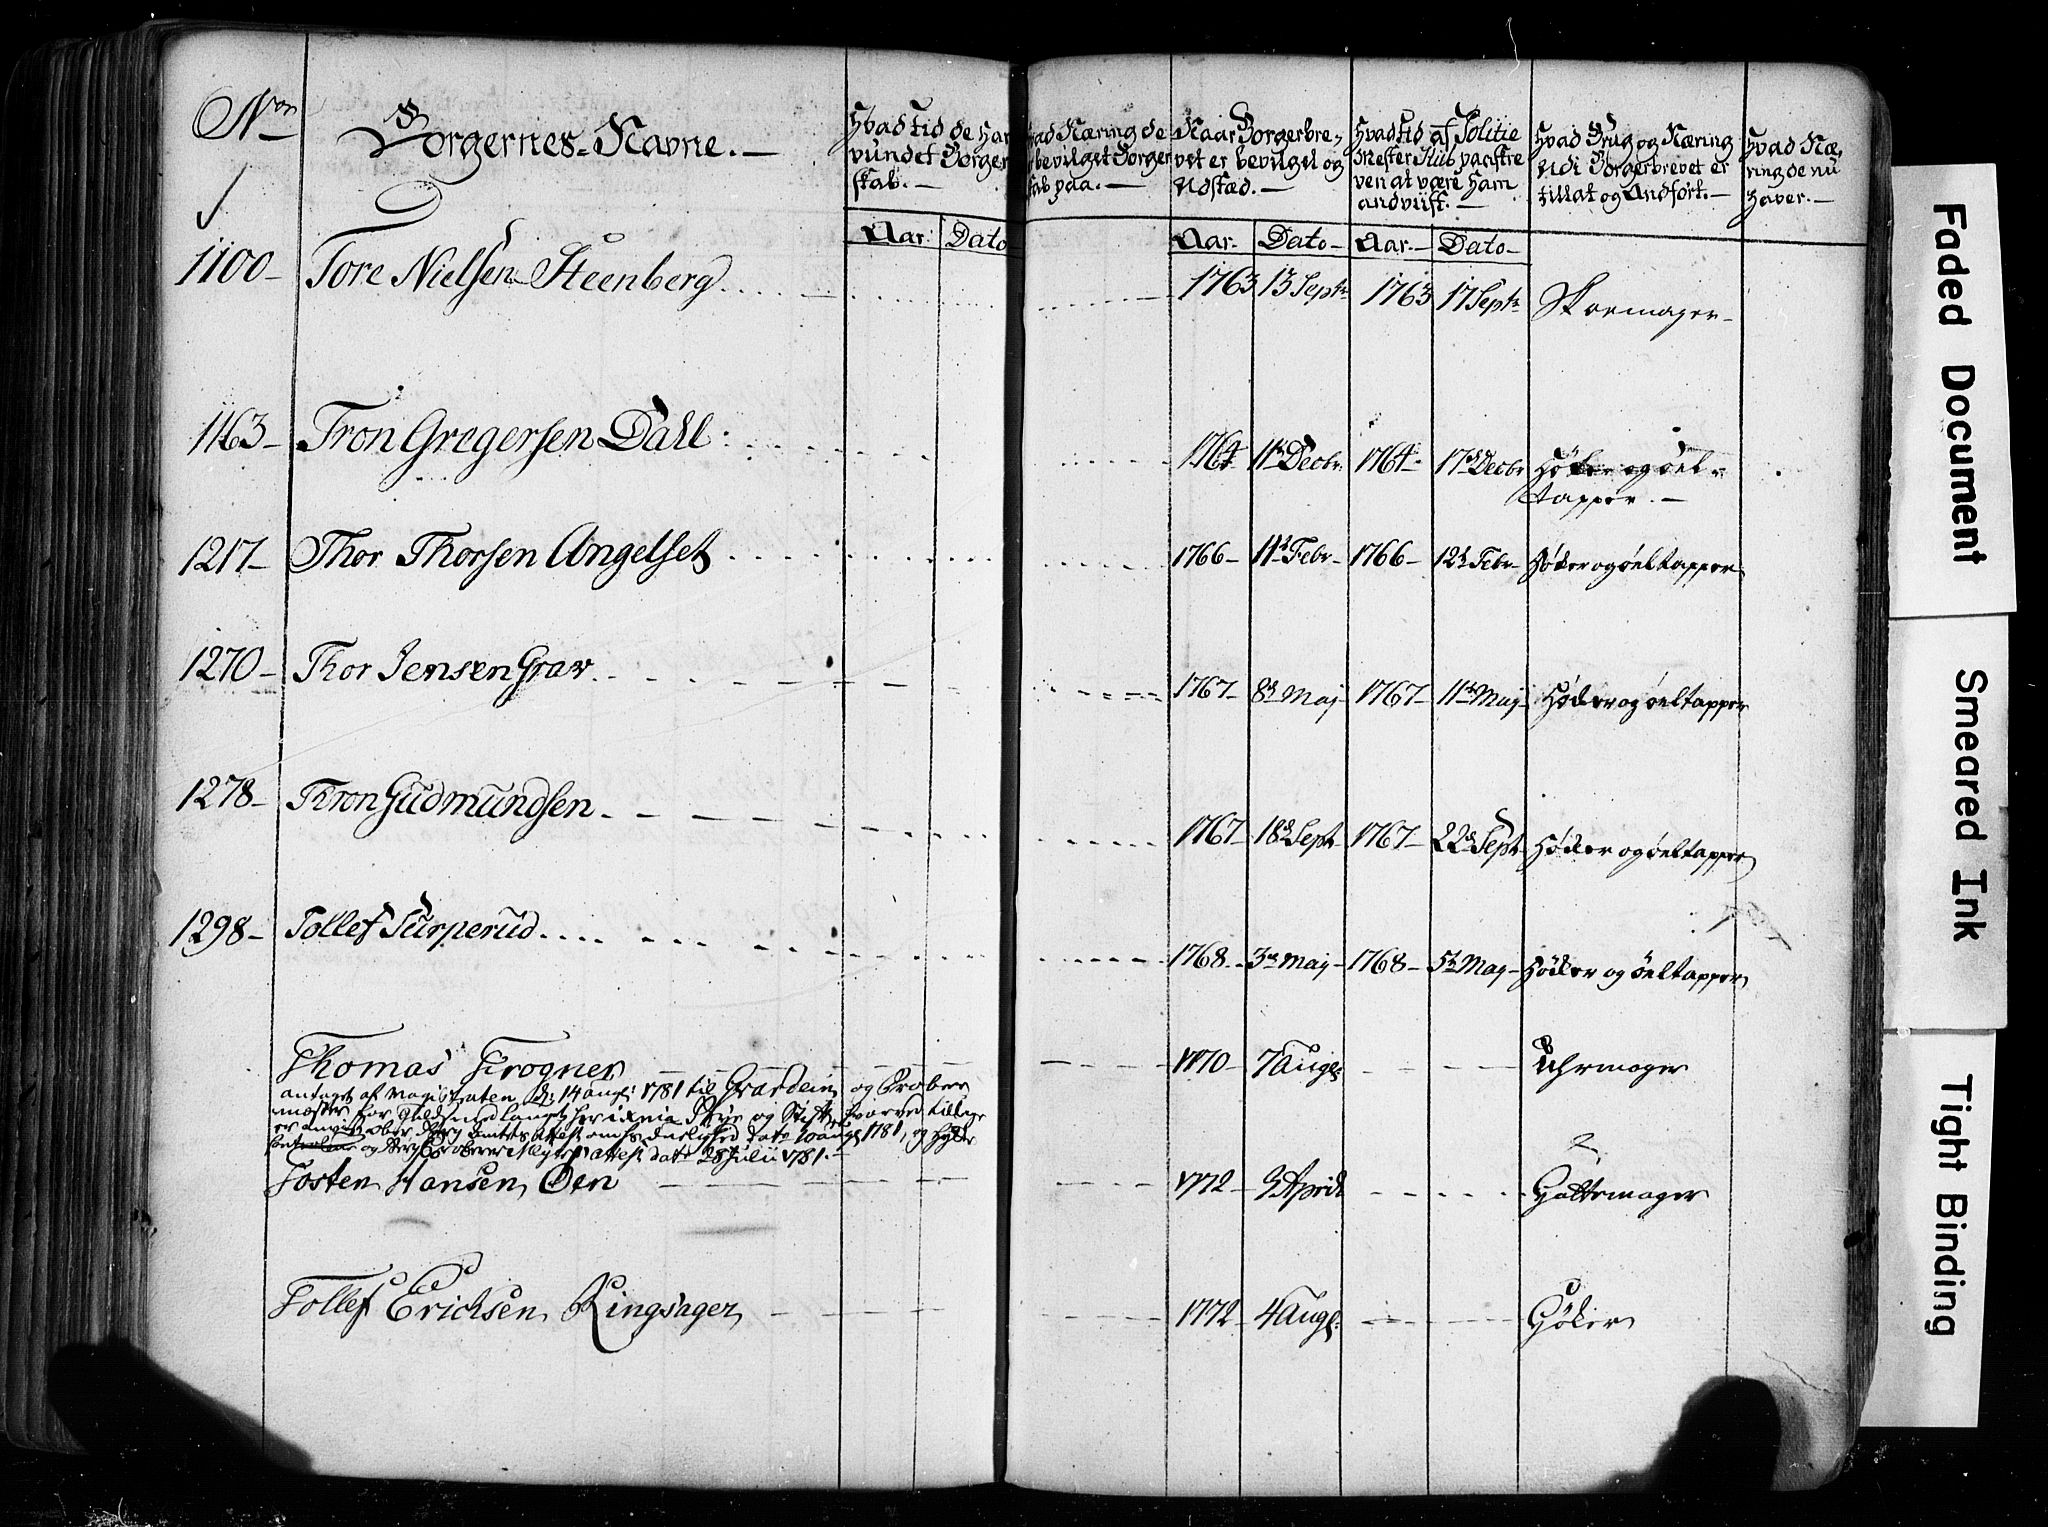 Nro
Borgernes Navne. —
Hvad Tid de har
vundet Borger
skab. —
Aar. Dato
Hvad Næring de
bevilget Borger
skab paa. —
Naar Borgerbre-
vet er bevilget og
Udstæd. —
Aar. Dato
Hvad Tid af Politie
Mester
ven at være ham
andviist. —
Aar. — Dato —
Hvad Brug og Næring
Udi Borgerbrevet er
tillat og Andført. —
Hvad Næ-
ring de nu
haver. —
1100 — Tore Nielsen Steenberg 1763 13 Septr 1763 17 Septr Skoemager —
1163 — Tron Gregersen Dahl 1764 11te Decbr. 1764 — 17de Decbr Høker og öel-
tapper. —
1217 — Thor Thorsen Angelset 1766 — 11te Febr. 1766 — 12te Febr. Høker og öeltapper
1270 — Thor Jensen Grav 1767 — 8de Maj 1767 — 11te Maj Høker og öeltapper
1278 — Thron Gudmundsen 1767 — 18de Sept 1767 — 22de Sept Høker og öeltapper
1298 — Tollef Turperud 1768 — 3die Maj 1768 — 5te Maj Høker og öeltapper
Thomas Frogner 1770 — 7 Aug. Uhrmager
antaget af Magistraten d. 14 aug. 1781 til Guardein og Prober
mæster for
og 28 Julii 1781. —
Tosten Hansen Öen 1772 — 3 April Hattemager
Tollef Erichsen Ringsager 1772 — 4 Aug. Høker
Faded Document
Smeared Ink
Tight Binding